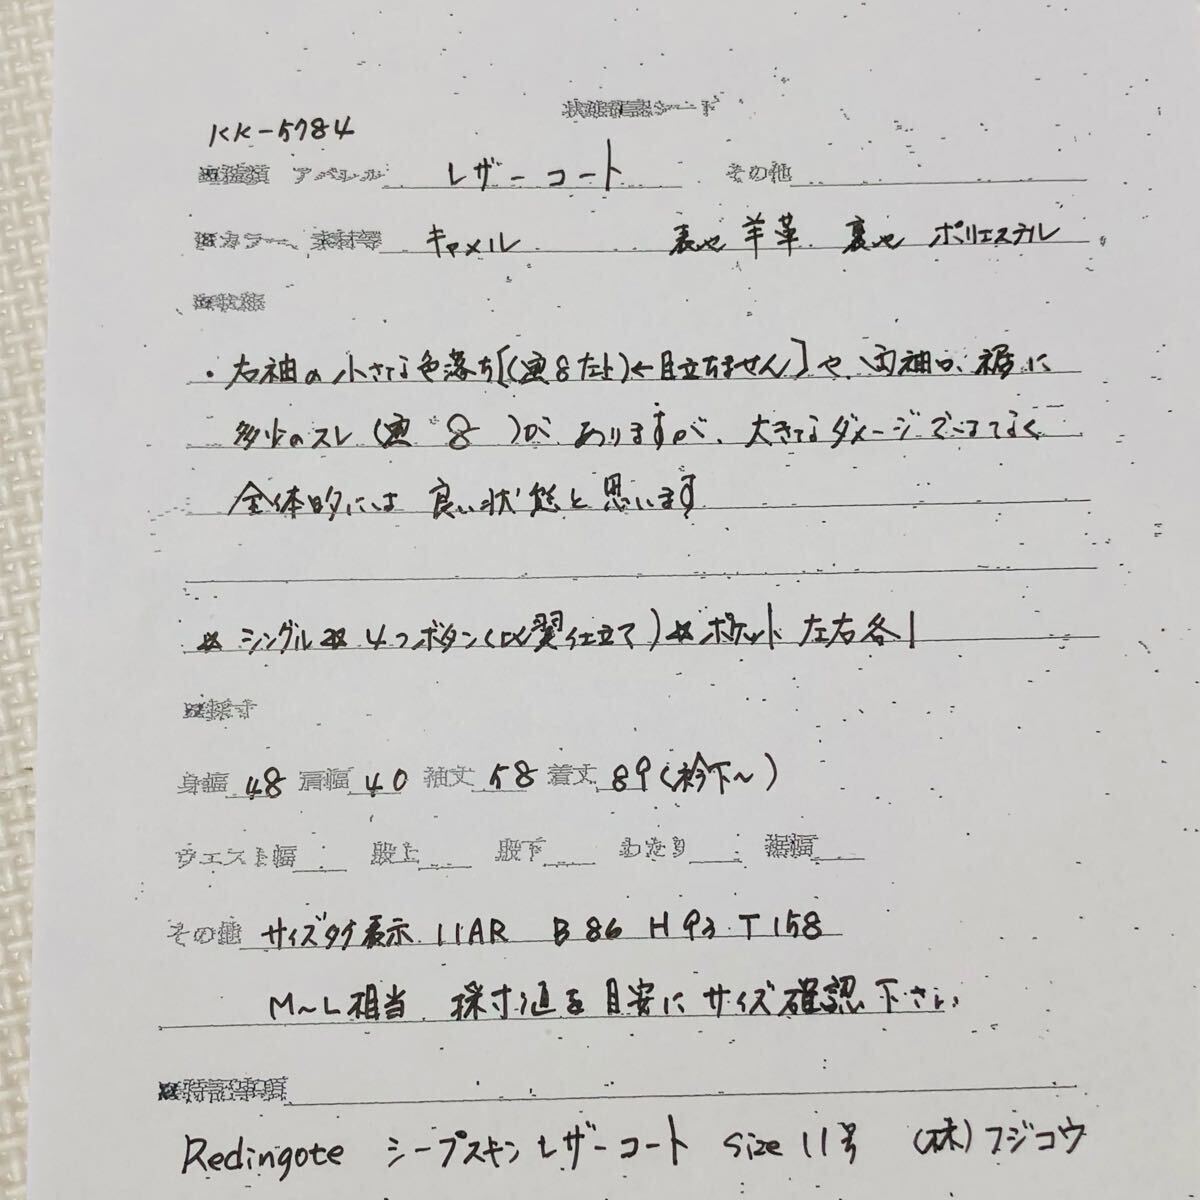 状態確認シート
KK-5784
■種類 アパレル レザーコート その他
■カラー、素材等 キャメル 表地 羊革 裏地 ポリエステル
■状態
・右袖の小さな色落ち[(画8左上)←目立ちません]や、両袖口、裾に
多少のスレ(画 8 )がありますが、大きなダメージでは なく
全体的には 良い状態と思います
* シングル * 4つボタン(比翼仕立て) * ポケット 左右各1
■採寸
身幅 48 肩幅 40 袖丈 58 着丈 89(衿下〜)
ウエスト幅 股上 股下 わたり 裾幅
その他 サイズタグ表示 11AR B86 H93 T158
M〜L相当 採寸値を目安にサイズ確認下さい
■特記事項
Redingote シープスキンレザーコート size 11号 (株)フジコウ